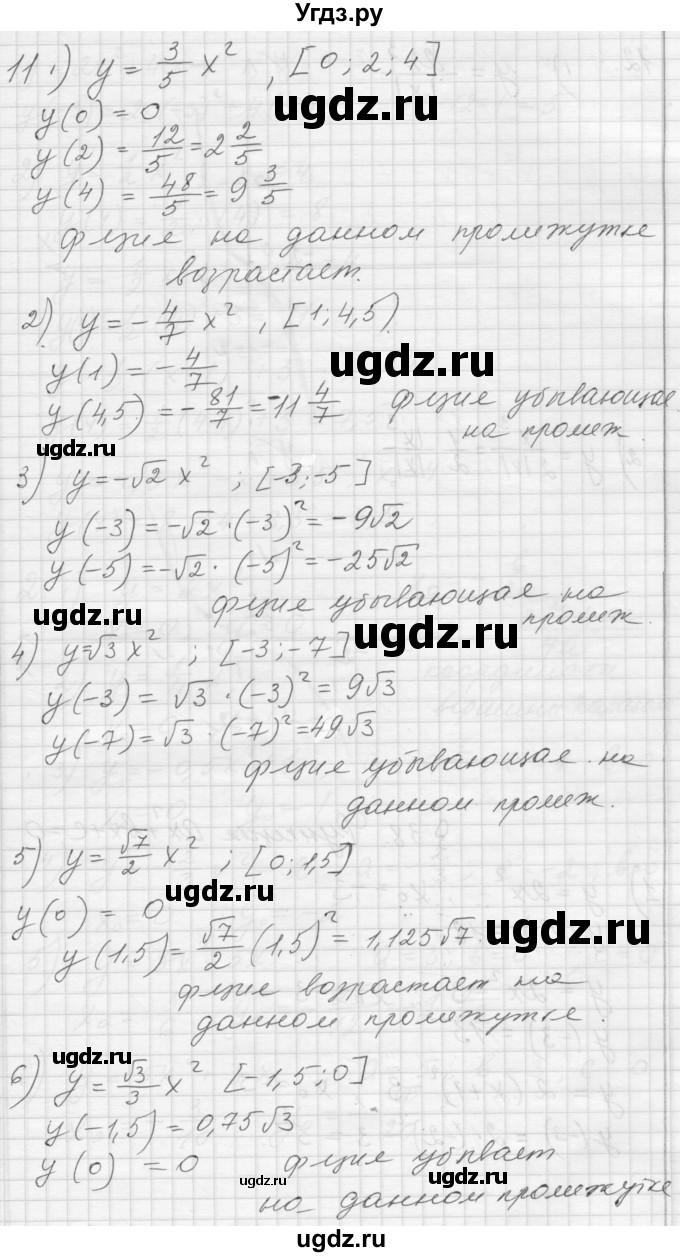 Угдз.ру
11 1) y = 3/5 x² , [0; 2; 4]
ugdz.ru
y(0) = 0
y(2) = 12/5 = 2 2/5
y(4) = 48/5 = 9 3/5
ф-ция на данном промежутке
возрастает.
2) y = - 4/7 x² , [1; 4,5)
ugdz.ru
y(1) = - 4/7
y(4,5) = - 81/7 = -11 4/7 ф-ция убывающая
на промеж.
ugdz.ru
3) y = -√2 x² ; [-3; -5]
y(-3) = -√2 · (-3)² = -9√2
y(-5) = -√2 · (-5)² = -25√2
ф-ция убывающая на
промеж.
ugdz.ru
ugdz.ru
4) y = √3 x² ; [-3; -7]
y(-3) = √3 · (-3)² = 9√3
y(-7) = √3 · (-7)² = 49√3
ф-ция убывающая на
данном промеж.
5) y = √7/2 x² ; [0; 1,5]
ugdz.ru
y(0) = 0
ugdz.ru
y(1,5) = √7/2 (1,5)² = 1,125√7
ф-ция возрастает на
данном промежутке.
ugdz.ru
6) y = √3/3 x² [-1,5; 0]
y(-1,5) = 0,75√3
y(0) = 0 ф-ция убывает
ugdz.ru
ugdz.ru
на данном промежутке
ugdz.ru